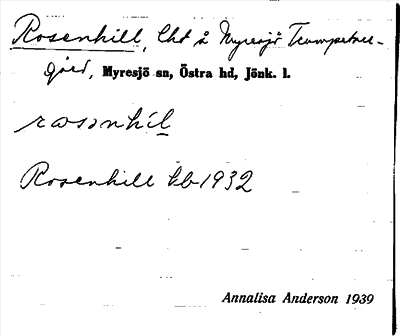 Rosenhill, lht å Myresjö Trumpetare-
gård, Myresjö sn, Östra hd, Jönk. l.
rωsənhíl
Rosenhill kb 1932
Annalisa Anderson 1939